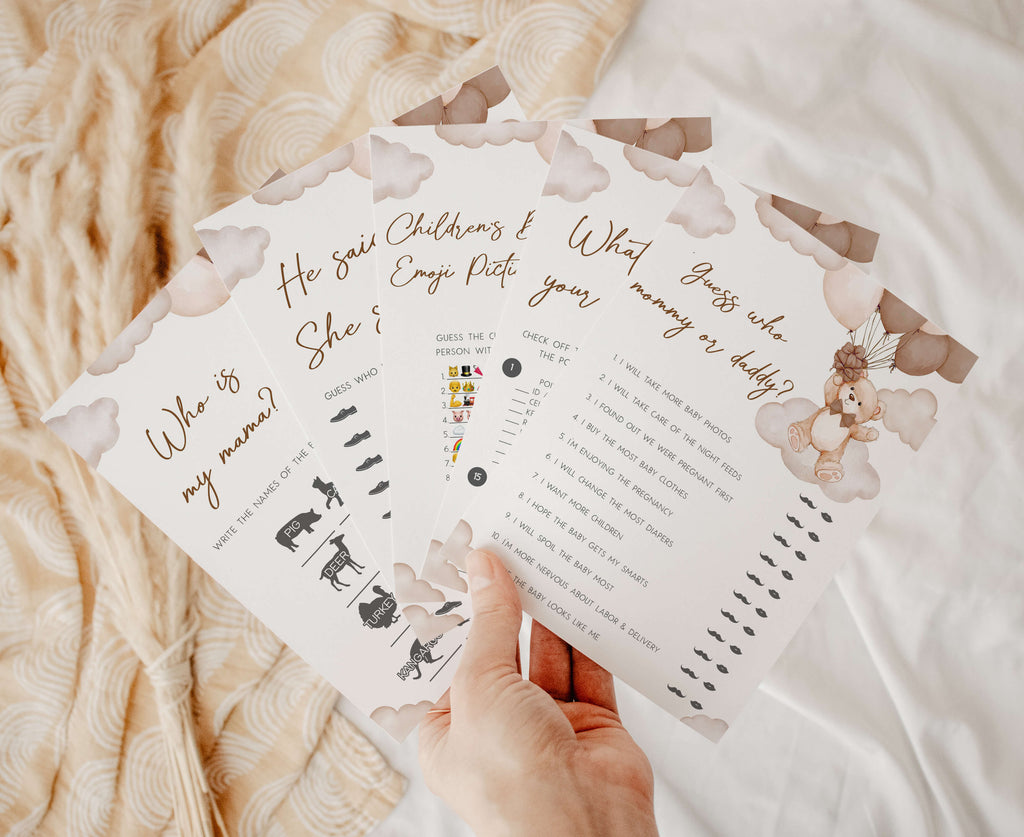 Who is
my mama?
WRITE THE NAMES OF THE
PIG
DEER
TURKEY
KANGAROO
He said
She
GUESS WHO
Children's
Emoji
GUESS THE
PERSON WIT
1.
2.
3.
4.
5.
6.
7.
8
What
your
CHECK OFF
THE
1
15
Guess who
mommy or daddy?
1. I WILL TAKE MORE BABY PHOTOS
2. I WILL TAKE CARE OF THE NIGHT FEEDS
3. I FOUND OUT WE WERE PREGNANT FIRST
4. I BUY THE MOST BABY CLOTHES
5. I'M ENJOYING THE PREGNANCY
6. I WILL CHANGE THE MOST DIAPERS
7. I WANT MORE CHILDREN
8. I HOPE THE BABY GETS MY SMARTS
9. I WILL SPOIL THE BABY MOST
10. I'M MORE NERVOUS ABOUT LABOR & DELIVERY
THE BABY LOOKS LIKE ME